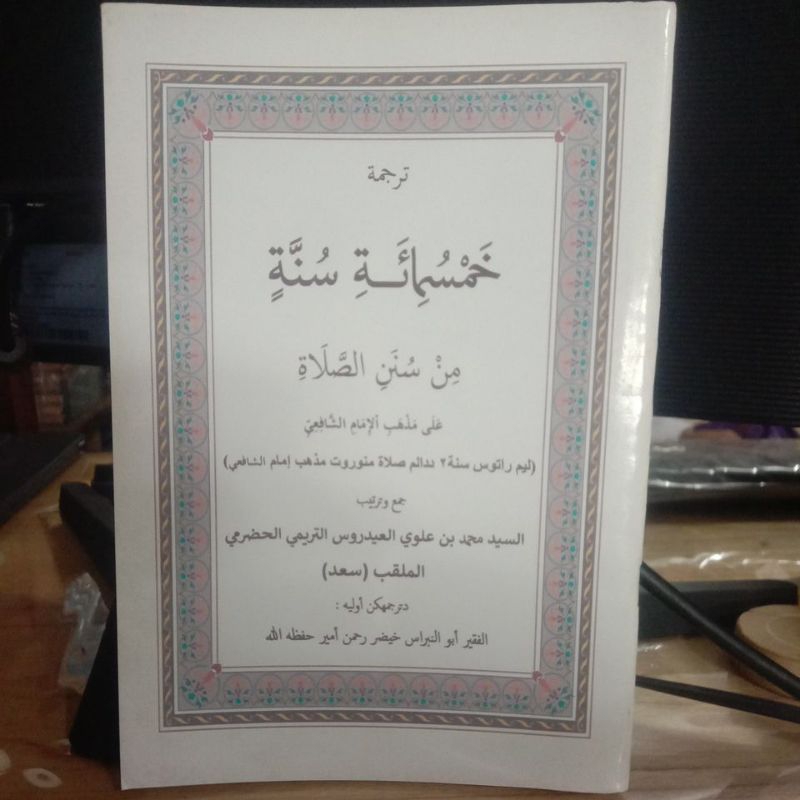 ترجمة
خَمْسُمِائَـةِ سُنَّةٍ
مِنْ سُنَنِ الصَّلَاةِ
عَلَى مَذْهَبِ الْإِمَامِ الشَّافِعِيِّ
(ليم راتوس سنة٢ ددالم صلاة منوروت مذهب إمام الشافعي)
جمع وترتيب
السيد محمد بن علوي العيدروس التريمي الحضرمي
الملقب (سعد)
دترجمهكن أوليه :
الفقير أبو النبراس خيضر رحمن أمير حفظه الله